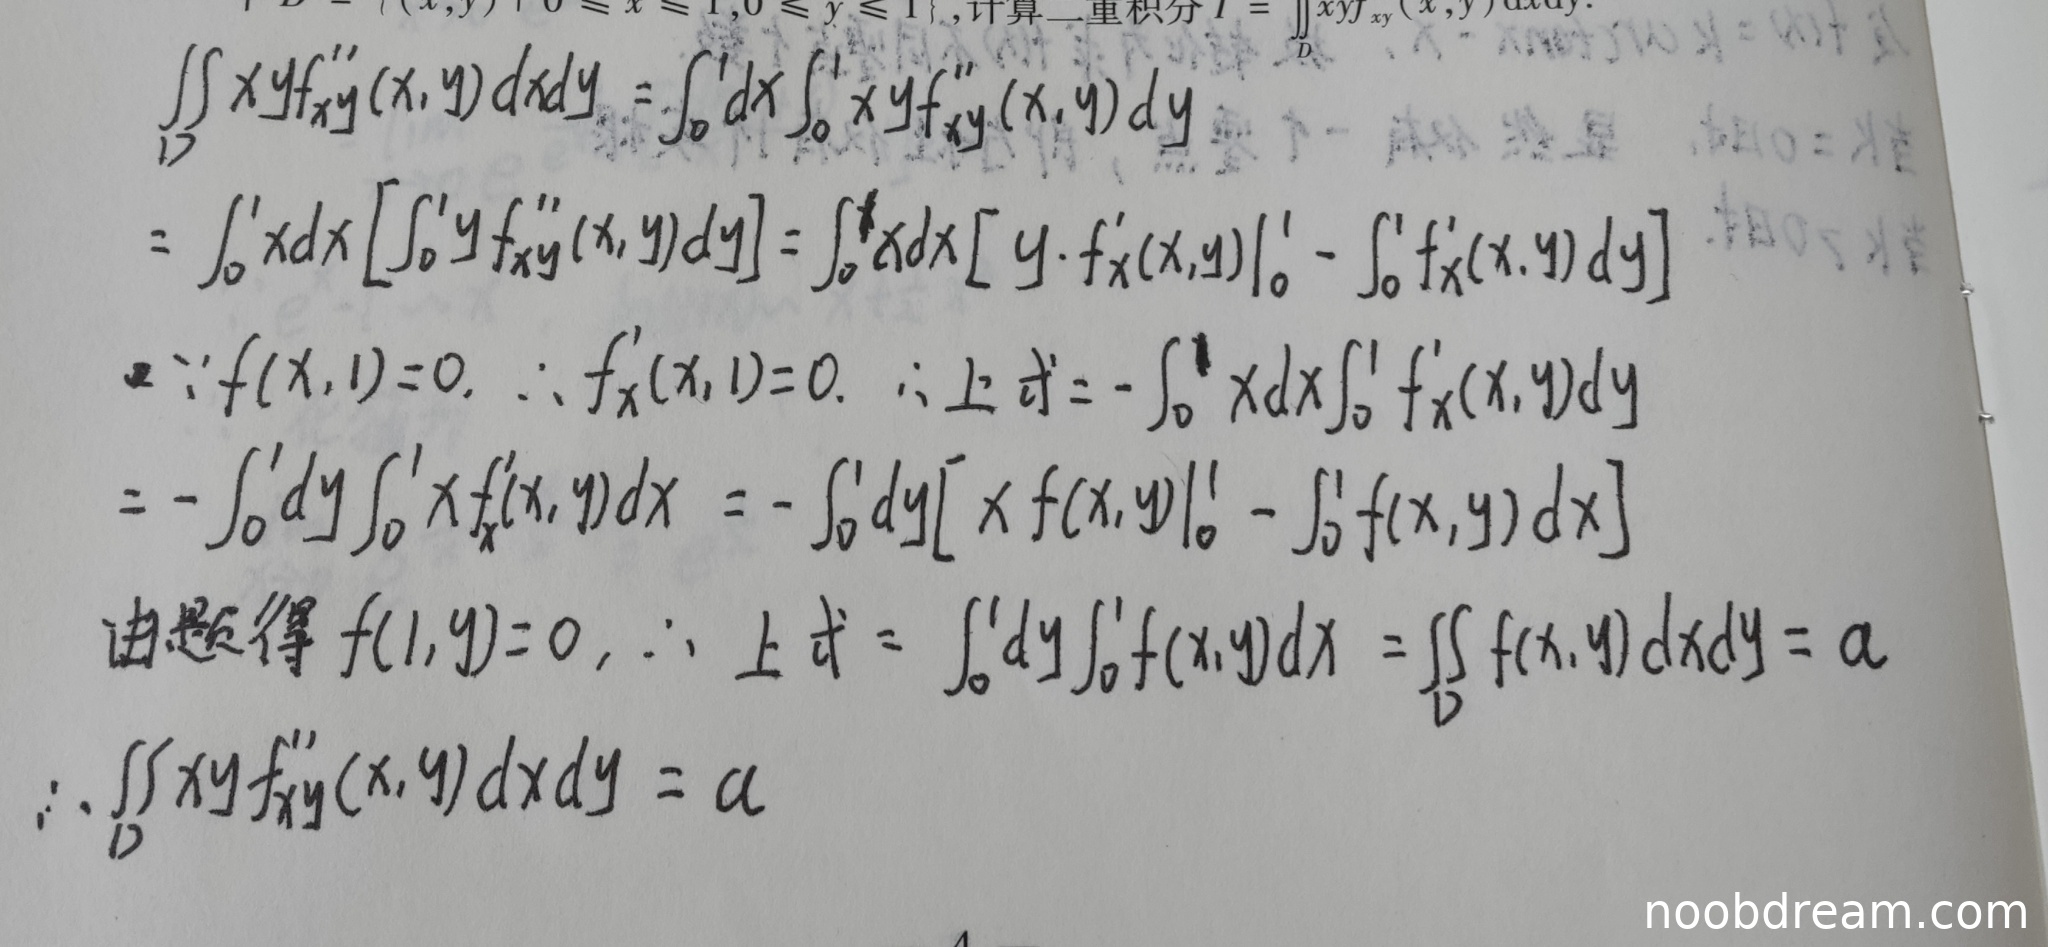 D = {(x,y) | 0 ⩽ x ⩽ 1,0 ⩽ y ⩽ 1},计算二重积分 I = ∬_D xyf''_{xy}(x,y)dxdy.
∬_D xyf''_{xy}(x,y)dxdy = ∫_0^1 dx∫_0^1 xyf''_{xy}(x,y)dy
= ∫_0^1 xdx[∫_0^1 yf''_{xy}(x,y)dy] = ∫_0^1 xdx[y·f'_x(x,y)|_0^1 - ∫_0^1 f'_x(x,y)dy]
∵f(x,1)=0. ∴f'_x(x,1)=0. ∴上式=-∫_0^1 xdx∫_0^1 f'_x(x,y)dy
= -∫_0^1 dy∫_0^1 xf'_x(x,y)dx = -∫_0^1 dy[xf(x,y)|_0^1 - ∫_0^1 f(x,y)dx]
由题得 f(1,y)=0, ∴上式= ∫_0^1 dy∫_0^1 f(x,y)dx = ∬_D f(x,y)dxdy = a
∴∬_D xyf''_{xy}(x,y)dxdy = a
noobdream.com